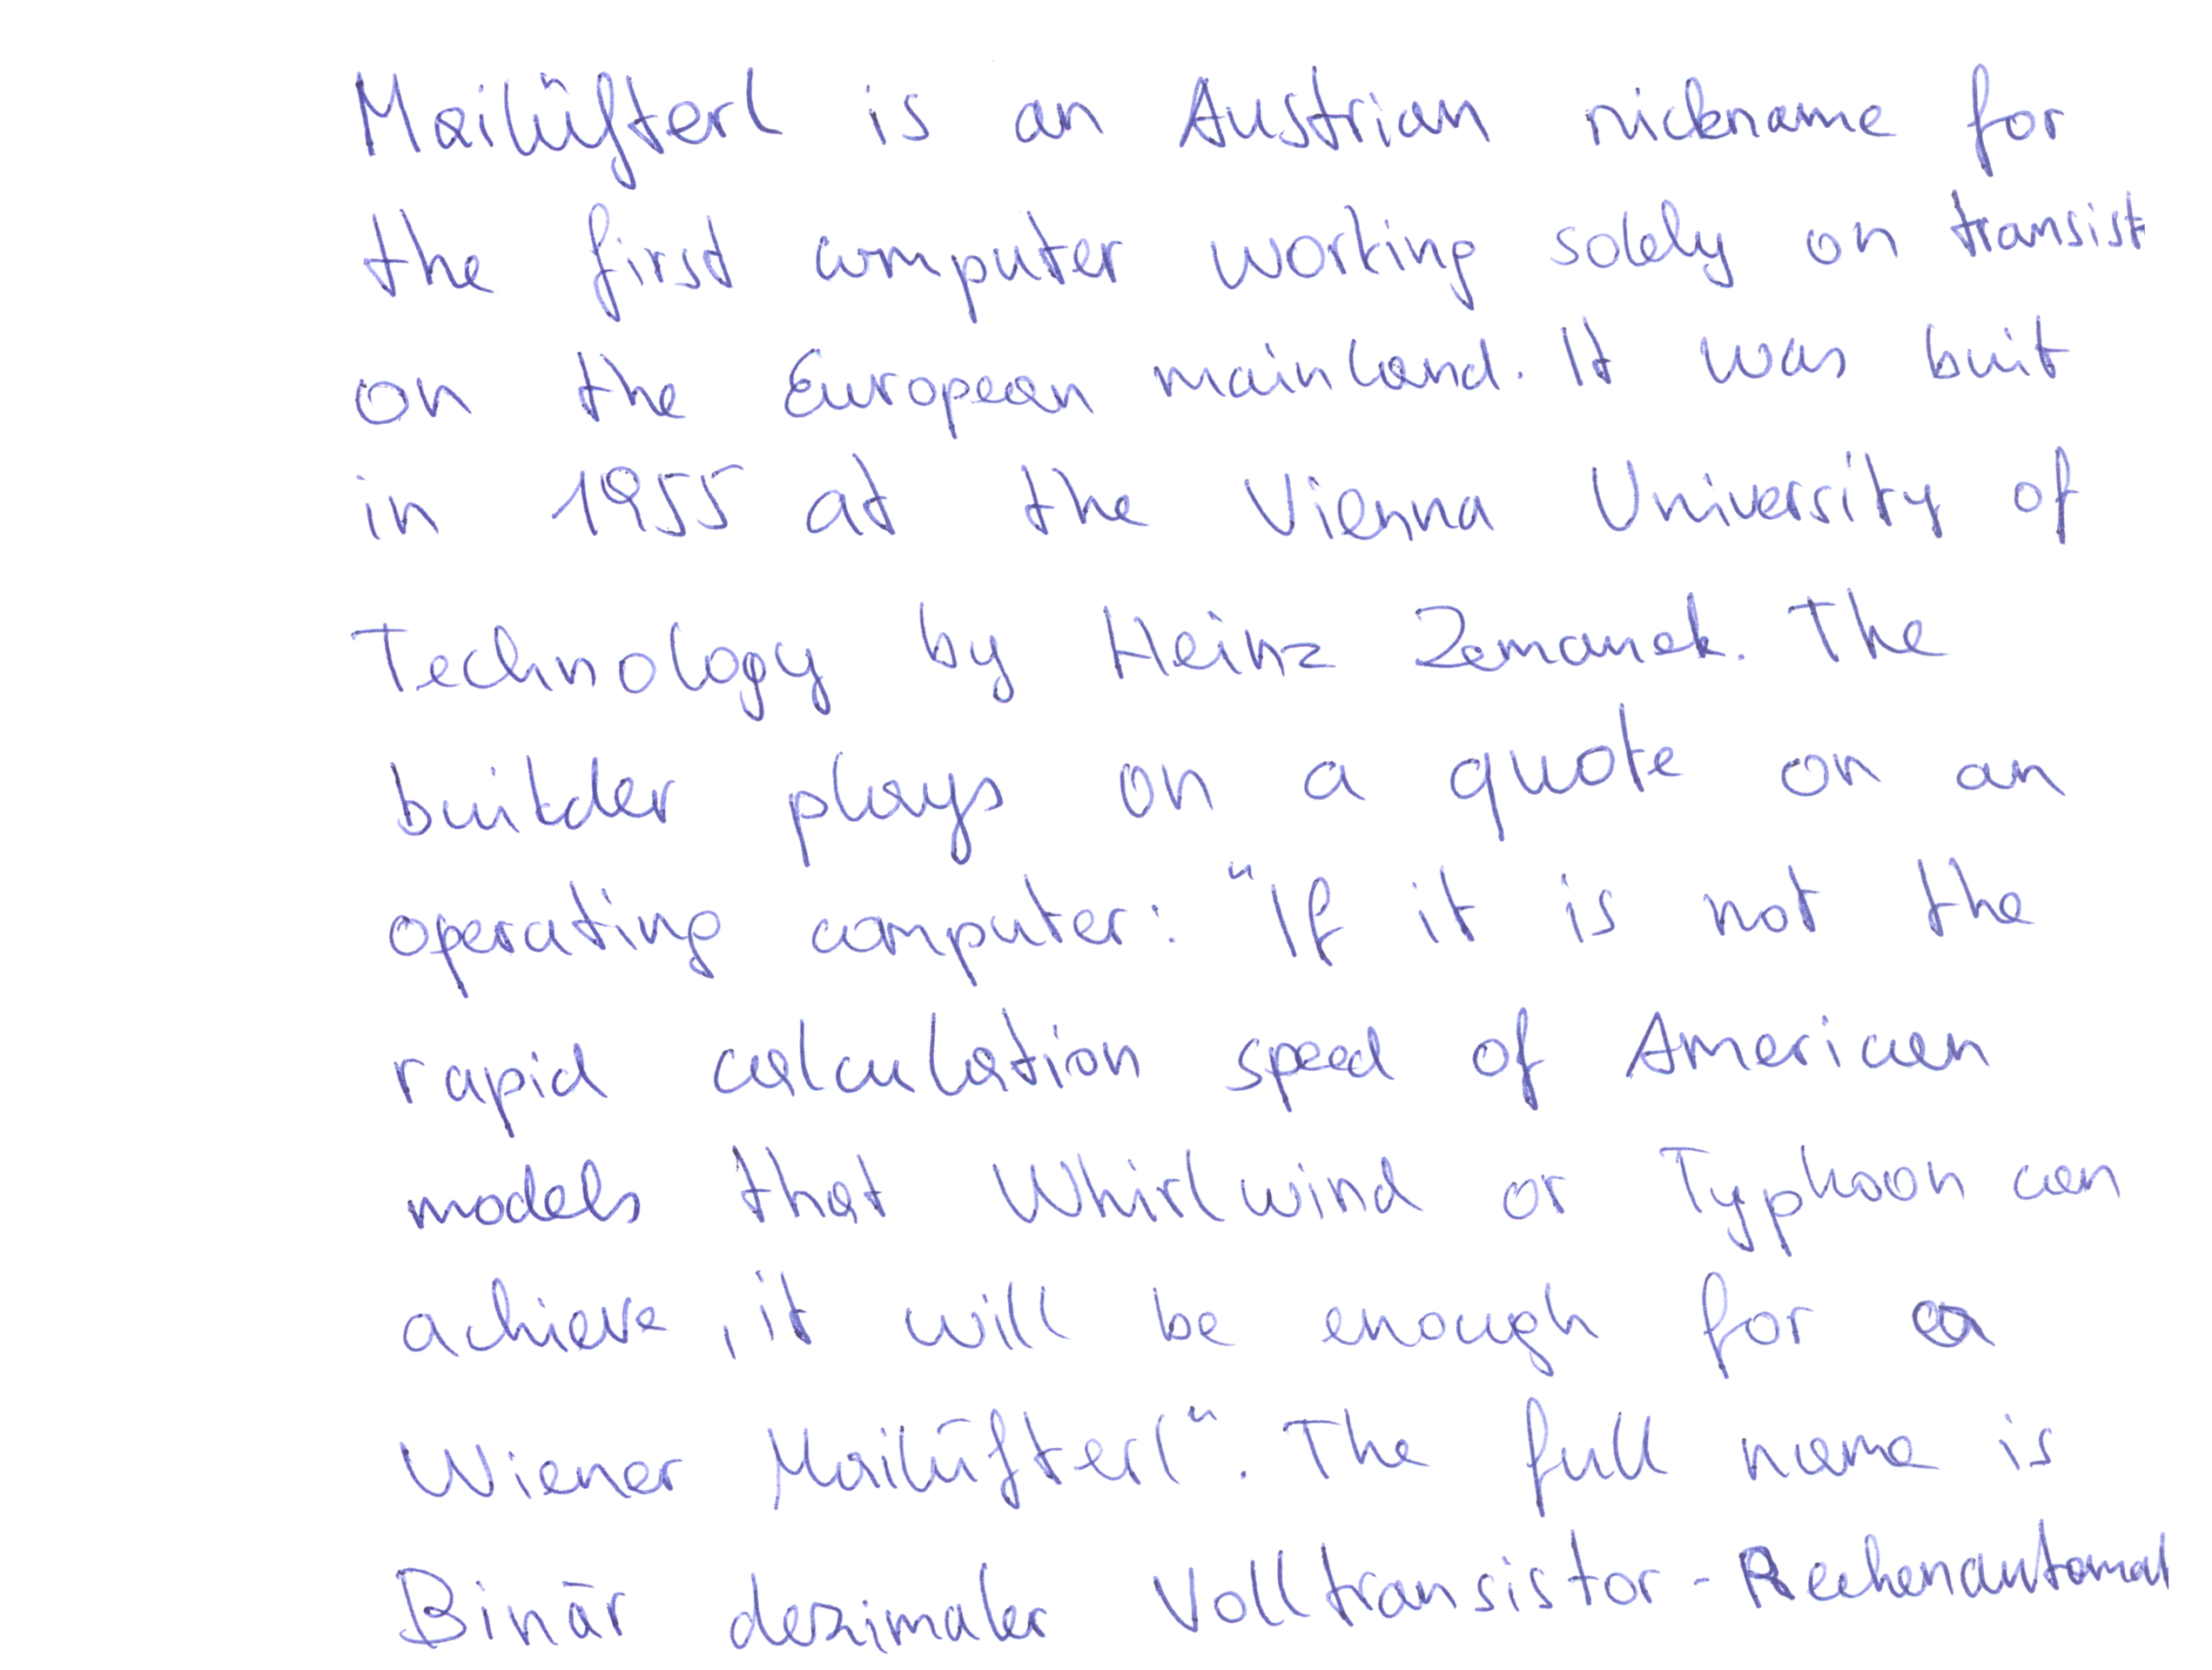 Mailüfterl is an Austrian nickname for
the first computer working solely on transist
on the European mainland. It was buit
in 1955 at the Vienna University of
Technology by Heinz Zemanek. The
builder plays on a quote on an
operating computer: "If it is not the
rapid calculation speed of American
models that Whirlwind or Typhoon can
achieve, it will be enough for a
Wiener Mailüfterl". The full name is
Binär dezimaler Volltransistor-Rechenautomat